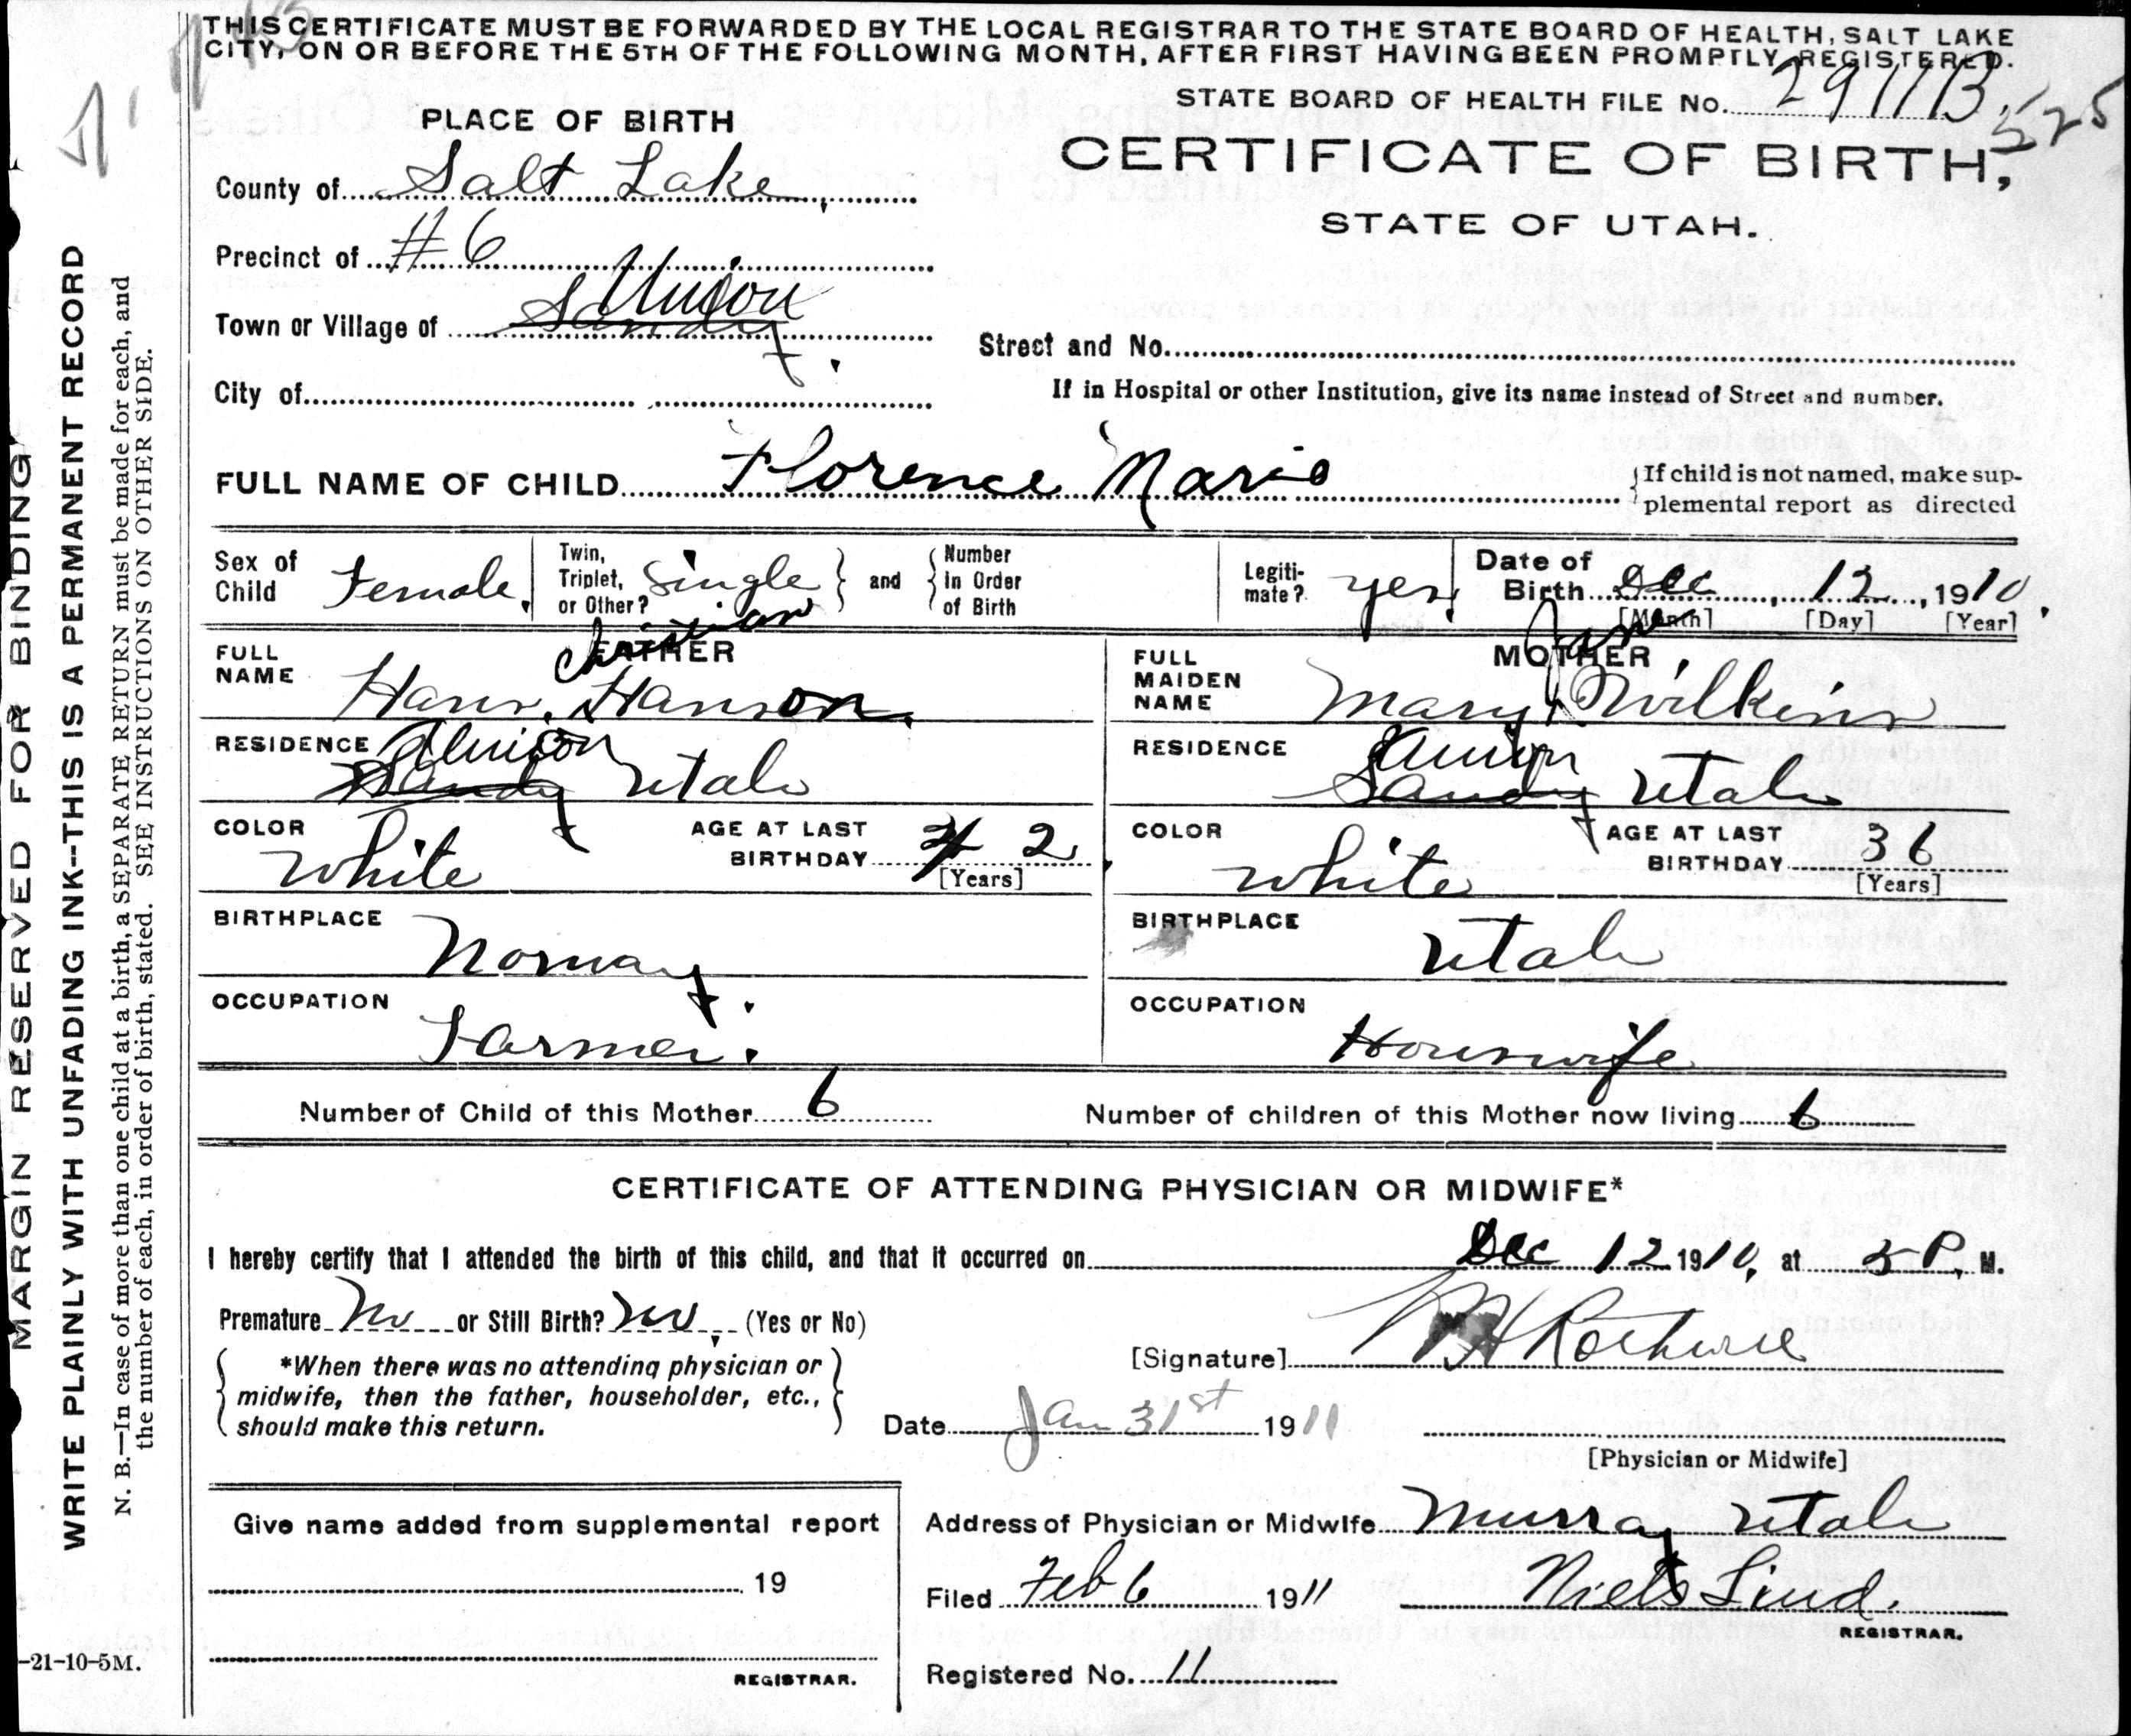 THIS CERTIFICATE MUST BE FORWARDED BY THE LOCAL REGISTRAR TO THE STATE BOARD OF HEALTH, SALT LAKE
CITY, ON OR BEFORE THE 5TH OF THE FOLLOWING MONTH, AFTER FIRST HAVING BEEN PROMPTLY REGISTERED.
STATE BOARD OF HEALTH FILE No. 291113
525
PLACE OF BIRTH
CERTIFICATE OF BIRTH,
STATE OF UTAH.
County of Salt Lake
Precinct of #6
Union
Town or Village of Sandy
Street and No.
City of
If in Hospital or other Institution, give its name instead of Street and number.
FULL NAME OF CHILD Florence Marie
If child is not named, make sup-
plemental report as directed
Sex of Child Female
Twin, Triplet, or Other? Single and Number In Order of Birth
Legiti-mate? yes
Date of Birth Dec 12, 1910
[Month] [Day] [Year]
FATHER
FULL NAME Hans Christian Hanson
RESIDENCE Union Sandy Utah
COLOR White
AGE AT LAST BIRTHDAY 42
[Years]
BIRTHPLACE Norway
OCCUPATION Farmer.
MOTHER
FULL MAIDEN NAME Mary Jane Wilkins
RESIDENCE Union Sandy Utah
COLOR White
AGE AT LAST BIRTHDAY 36
[Years]
BIRTHPLACE Utah
OCCUPATION Housewife
Number of Child of this Mother 6
Number of children of this Mother now living 6
CERTIFICATE OF ATTENDING PHYSICIAN OR MIDWIFE*
I hereby certify that I attended the birth of this child, and that it occurred on Dec 12 1910, at 5 P. M.
Premature No or Still Birth? No (Yes or No)
*When there was no attending physician or
midwife, then the father, householder, etc.,
should make this return.
[Signature]
Date Jan 31st 1911
[Physician or Midwife]
Give name added from supplemental report
19
REGISTRAR.
Address of Physician or Midwife Murray Utah
Filed Feb 6 1911 Niels Lind.
REGISTRAR.
Registered No. 11
MARGIN RESERVED FOR BINDING
WRITE PLAINLY WITH UNFADING INK--THIS IS A PERMANENT RECORD
N. B.—In case of more than one child at a birth, a SEPARATE RETURN must be made for each, and
the number of each, in order of birth, stated. SEE INSTRUCTIONS ON OTHER SIDE.
-21-10-5M.